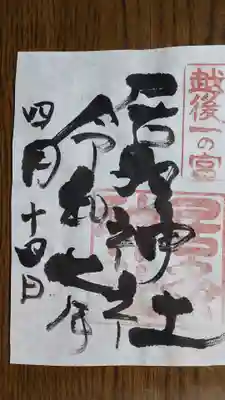 越後一の宮
居多神社
令和七年
四月十四日